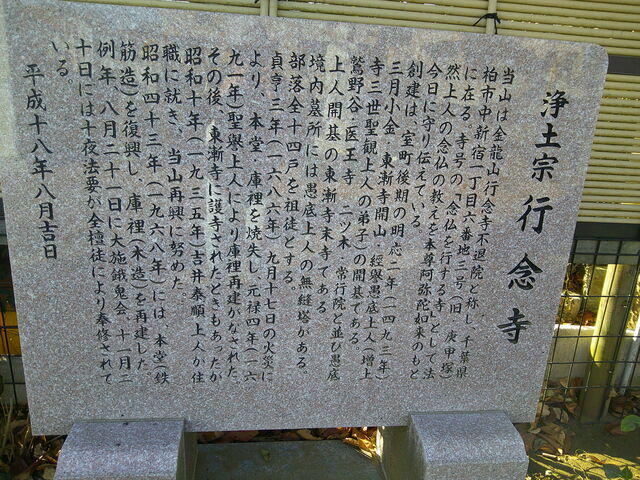 浄土宗 行念寺
当山は金龍山行念寺不退院と称し、千葉県
柏市中新宿一丁目六番地二号(旧 庚申塚)
に在る。寺号の「念仏を行する寺」として法
然上人の念仏の教えを本尊阿弥陀如来のもと
今日に守り伝えている。
創建は、室町後期の明応二年(一四九三年)
三月小金・東漸寺開山・經譽愚底上人(増上
寺三世聖観上人の弟子)の開基である。
鷲野谷・医王寺 一ツ木・常行院と並び愚底
上人開基の東漸寺末寺である。
境内墓所には愚底上人の無縫塔がある。
部落全十四戸を祖徒とする。
貞亨三年(一六八六年)九月十七日の火災に
より、本堂・庫裡を焼失し、元禄四年(一六
九一年)聖譽上人により庫裡再建がなされた。
その後、東漸寺に護寺されたときもあったが
昭和十年(一九三五年)吉井泰順上人が住
職に就き、当山再興に努めた。
昭和四十三年(一九六八年)には、本堂(鉄
筋造)を復興し、庫裡(木造)を再建した。
例年、八月二十一日に大施餓鬼会、十一月二
十日には十夜法要が全檀徒により奉修されて
いる
平成十八年八月吉日